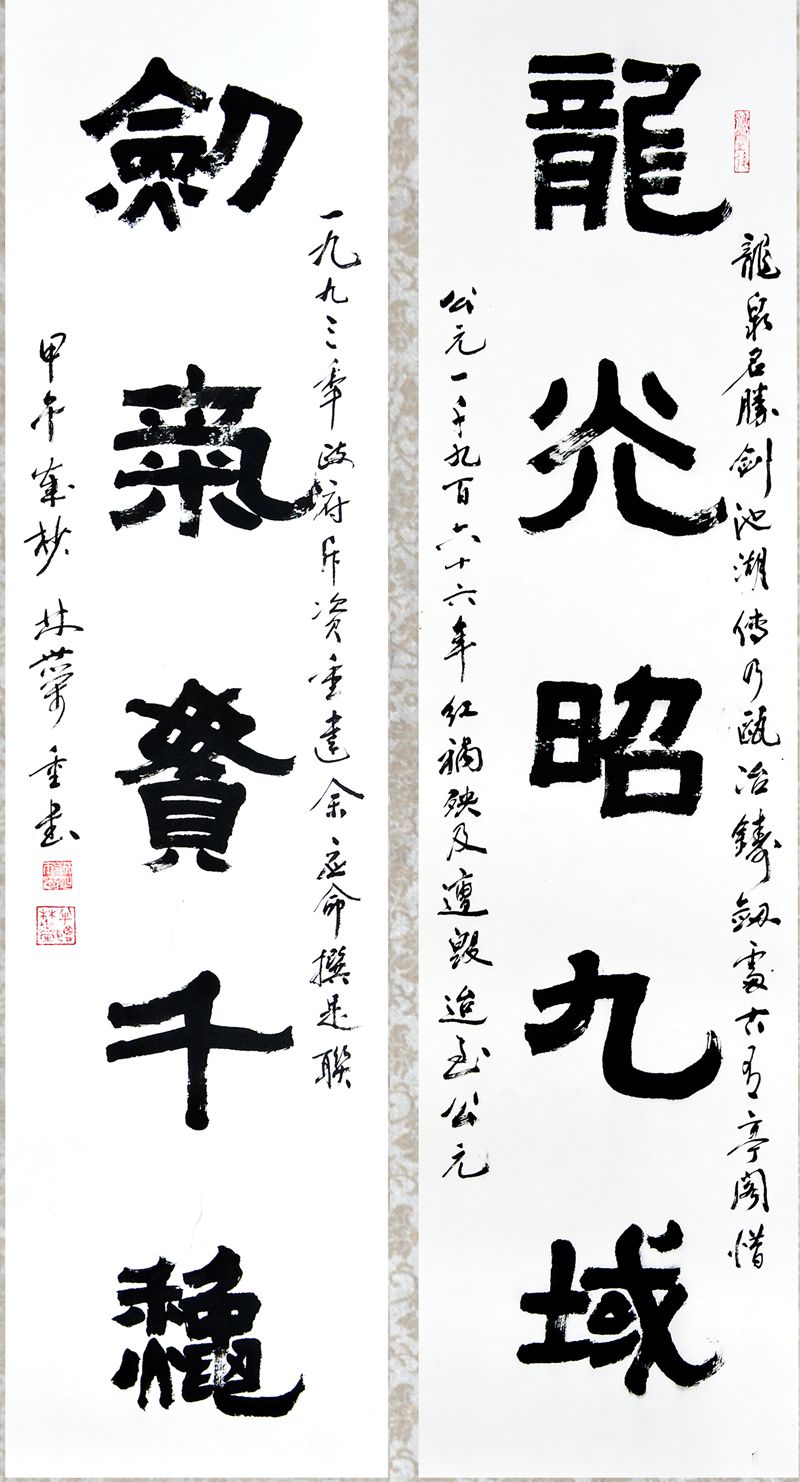 龍泉名勝剑池湖傳乃甌冶鑄劔處古有亭閣惜
龍光昭九域
公元一千九百六十六年红禍殃及遭毁迨至公元
一九九三年政府斥资重建余应命撰是聯
劔氣賚千龝
甲午歲杪 林 重书